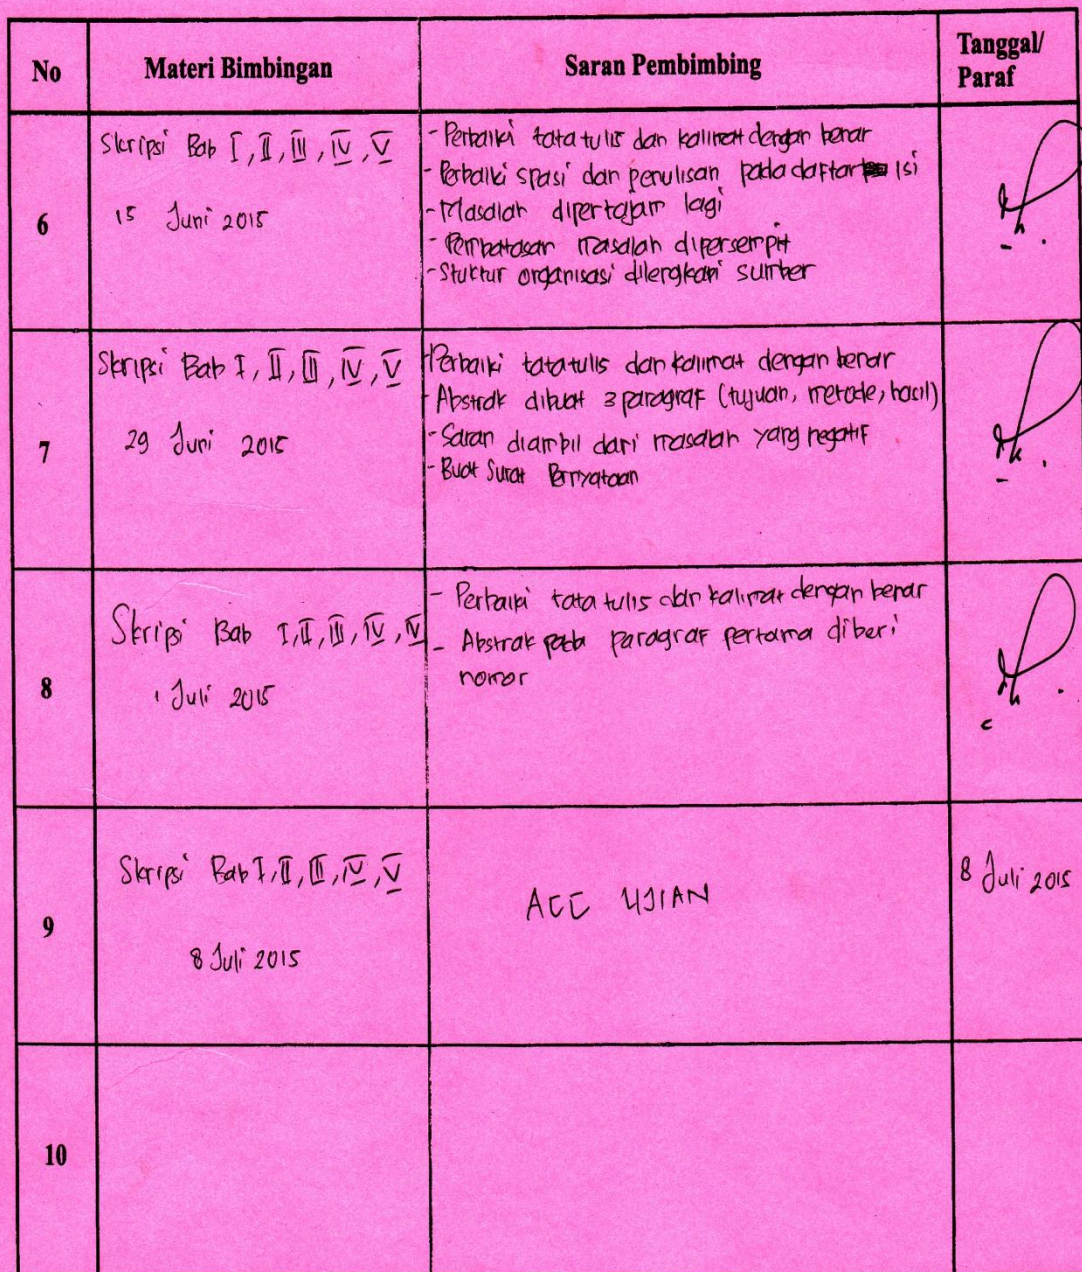 No
Materi Bimbingan
Saran Pembimbing
Tanggal/
Paraf
6
Skripsi Bab I, II, III, IV, V
15 Juni 2015
- Perbaiki tata tulis dan kalimat dengan benar
- Perbaiki spasi dan penulisan pada daftar isi
- Masalah dipertajam lagi
- Pembatasan masalah dipersempit
- Stuktur organisasi dilengkapi sumber
7
Skripsi Bab I, II, III, IV, V
29 Juni 2015
- Perbaiki tata tulis dan kalimat dengan benar
- Abstrak dibuat 3 paragraf (tujuan, metode, hasil)
- Saran diambil dari masalah yang negatif
- Buat Surat Pernyataan
8
Skripsi Bab I, II, III, IV, V
1 Juli 2015
- Perbaiki tata tulis dan kalimat dengan benar
- Abstrak pada paragraf pertama diberi
nomor
9
Skripsi Bab I, II, III, IV, V
8 Juli 2015
ACC UJIAN
8 Juli 2015
10